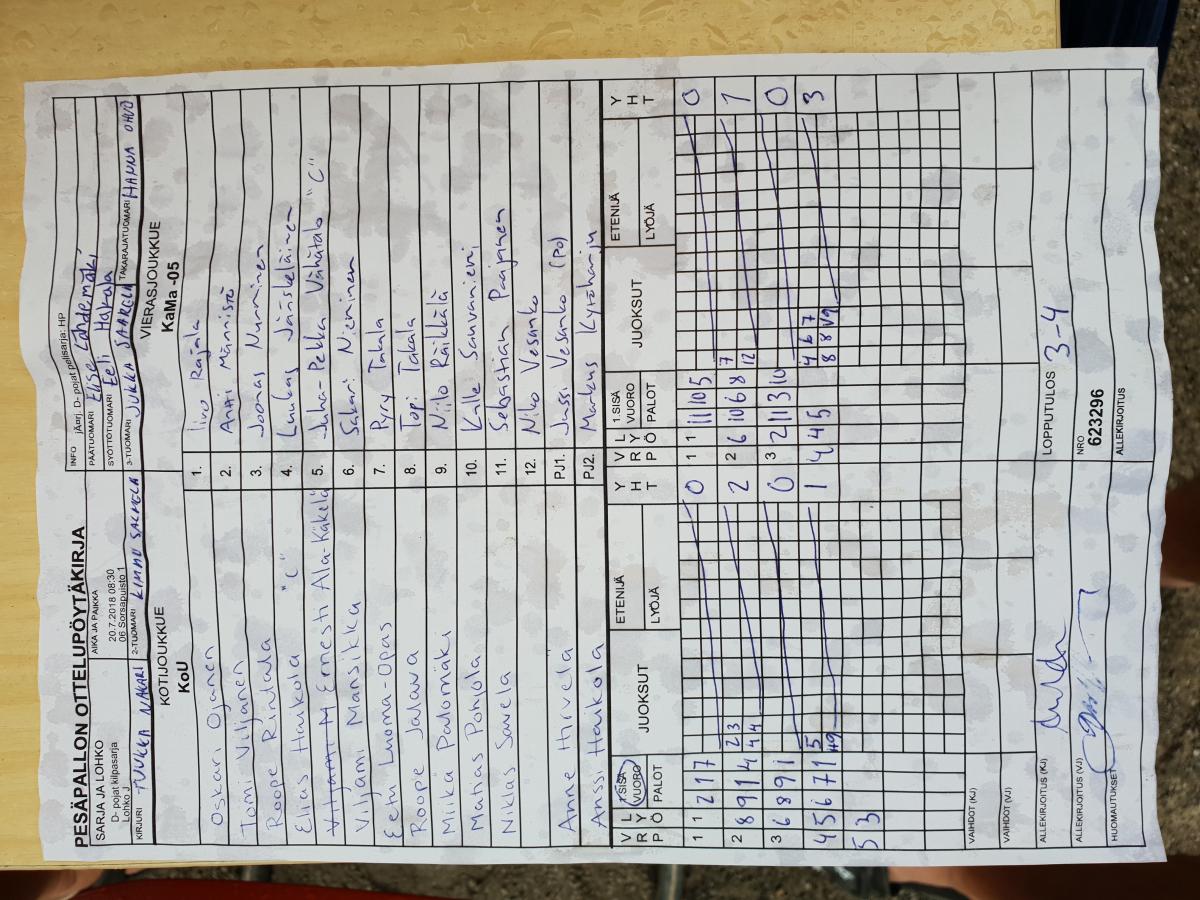 PESÄPALLON OTTELUPÖYTÄKIRJA
SARJA JA LOHKO
D- pojat kilpasarja
Lohko J
AIKA JA PAIKKA
20.7.2018 08:30
06 Sorsapuisto 1
INFO jAprj. D- pojat pelisarja: HP
PÄÄTUOMARI Elise Lähdemäki
SYÖTTÖTUOMARI Eeli Hakala
KIRJURI TUUKKA NAKARI
2-TUOMARI KIMMO SALMELA
3-TUOMARI JUKKA SAARELA
TAKARAJATUOMARI HANNA OHVO
KOTIJOUKKUE
KoU
VIERASJOUKKUE
KaMa -05
Oskari Ojanen 1. Iivo Rajala
Tomi Viljanen 2. Antti Männistö
Roope Rintala 3. Joonas Numminen
Elias Haukola "C" 4. Luukas Jänskeläinen
Ernesti Ala-Käkelä 5. Juha-Pekka Vähätalo "C"
Viljami Mansikka 6. Sakari Nieminen
Eetu Luoma-Opas 7. Pyry Takala
Roope Jalava 8. Topi Takala
Miika Palomäki 9. Niilo Räikkälä
Matias Pohjola 10. Kalle Sauvaniemi
Niklas Savela 11. Sebastian Paajanen
12. Niko Vesanko
Anne Hirvelä PJ1. Jussi Vesanko (po)
Anssi Haukola PJ2. Markus Kytöharju
V R P L Y Ö 1.SISÄ VUORO PALOT JUOKSUT ETENIJÄ LYÖJÄ Y H T V R P L Y Ö 1.SISÄ VUORO PALOT JUOKSUT ETENIJÄ LYÖJÄ Y H T
1 1 2 1 7 0 1 1 11 10 5 0
2 8 9 1 4 2 3 4 4 2 2 6 10 6 8 7 12 1
3 6 8 9 1 0 3 2 11 3 10 0
4 5 6 7 1 5 1 4 4 5 4 6 7 8 8 3
5 3
VAIHDOT (KJ)
VAIHDOT (VJ)
ALLEKIRJOITUS (KJ)
LOPPUTULOS 3-4
ALLEKIRJOITUS (VJ)
NRO
623296
HUOMAUTUKSET
ALLEKIRJOITUS